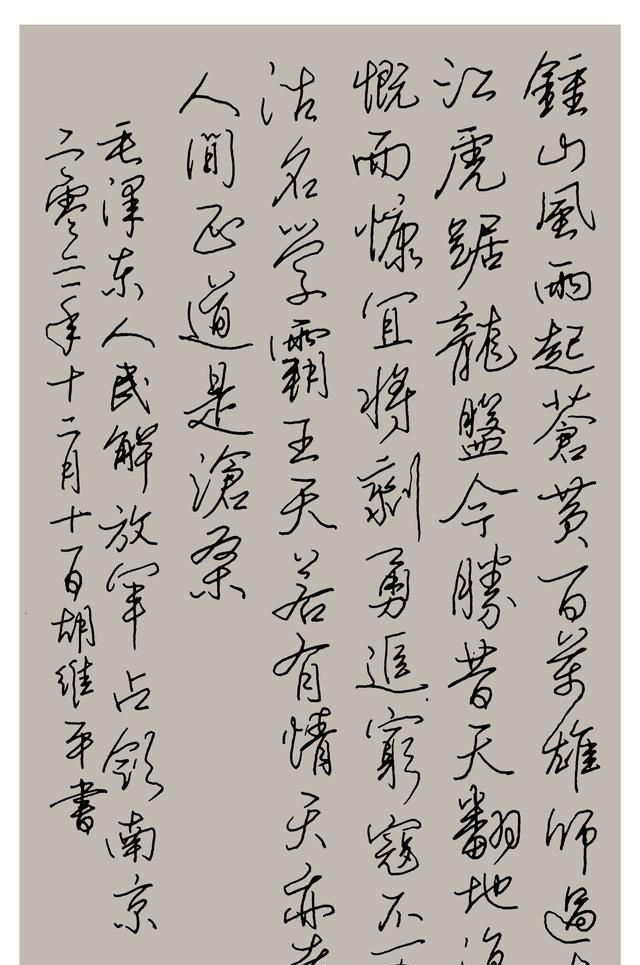 鍾山風雨起蒼黄百萬雄師過
江虎踞龍盤今勝昔天翻地
慨而慷宜將剩勇追窮寇不
沽名學霸王天若有情天亦
人間正道是滄桑
毛澤東人民解放軍占領南京
二零二一年十二月十一日胡維平書